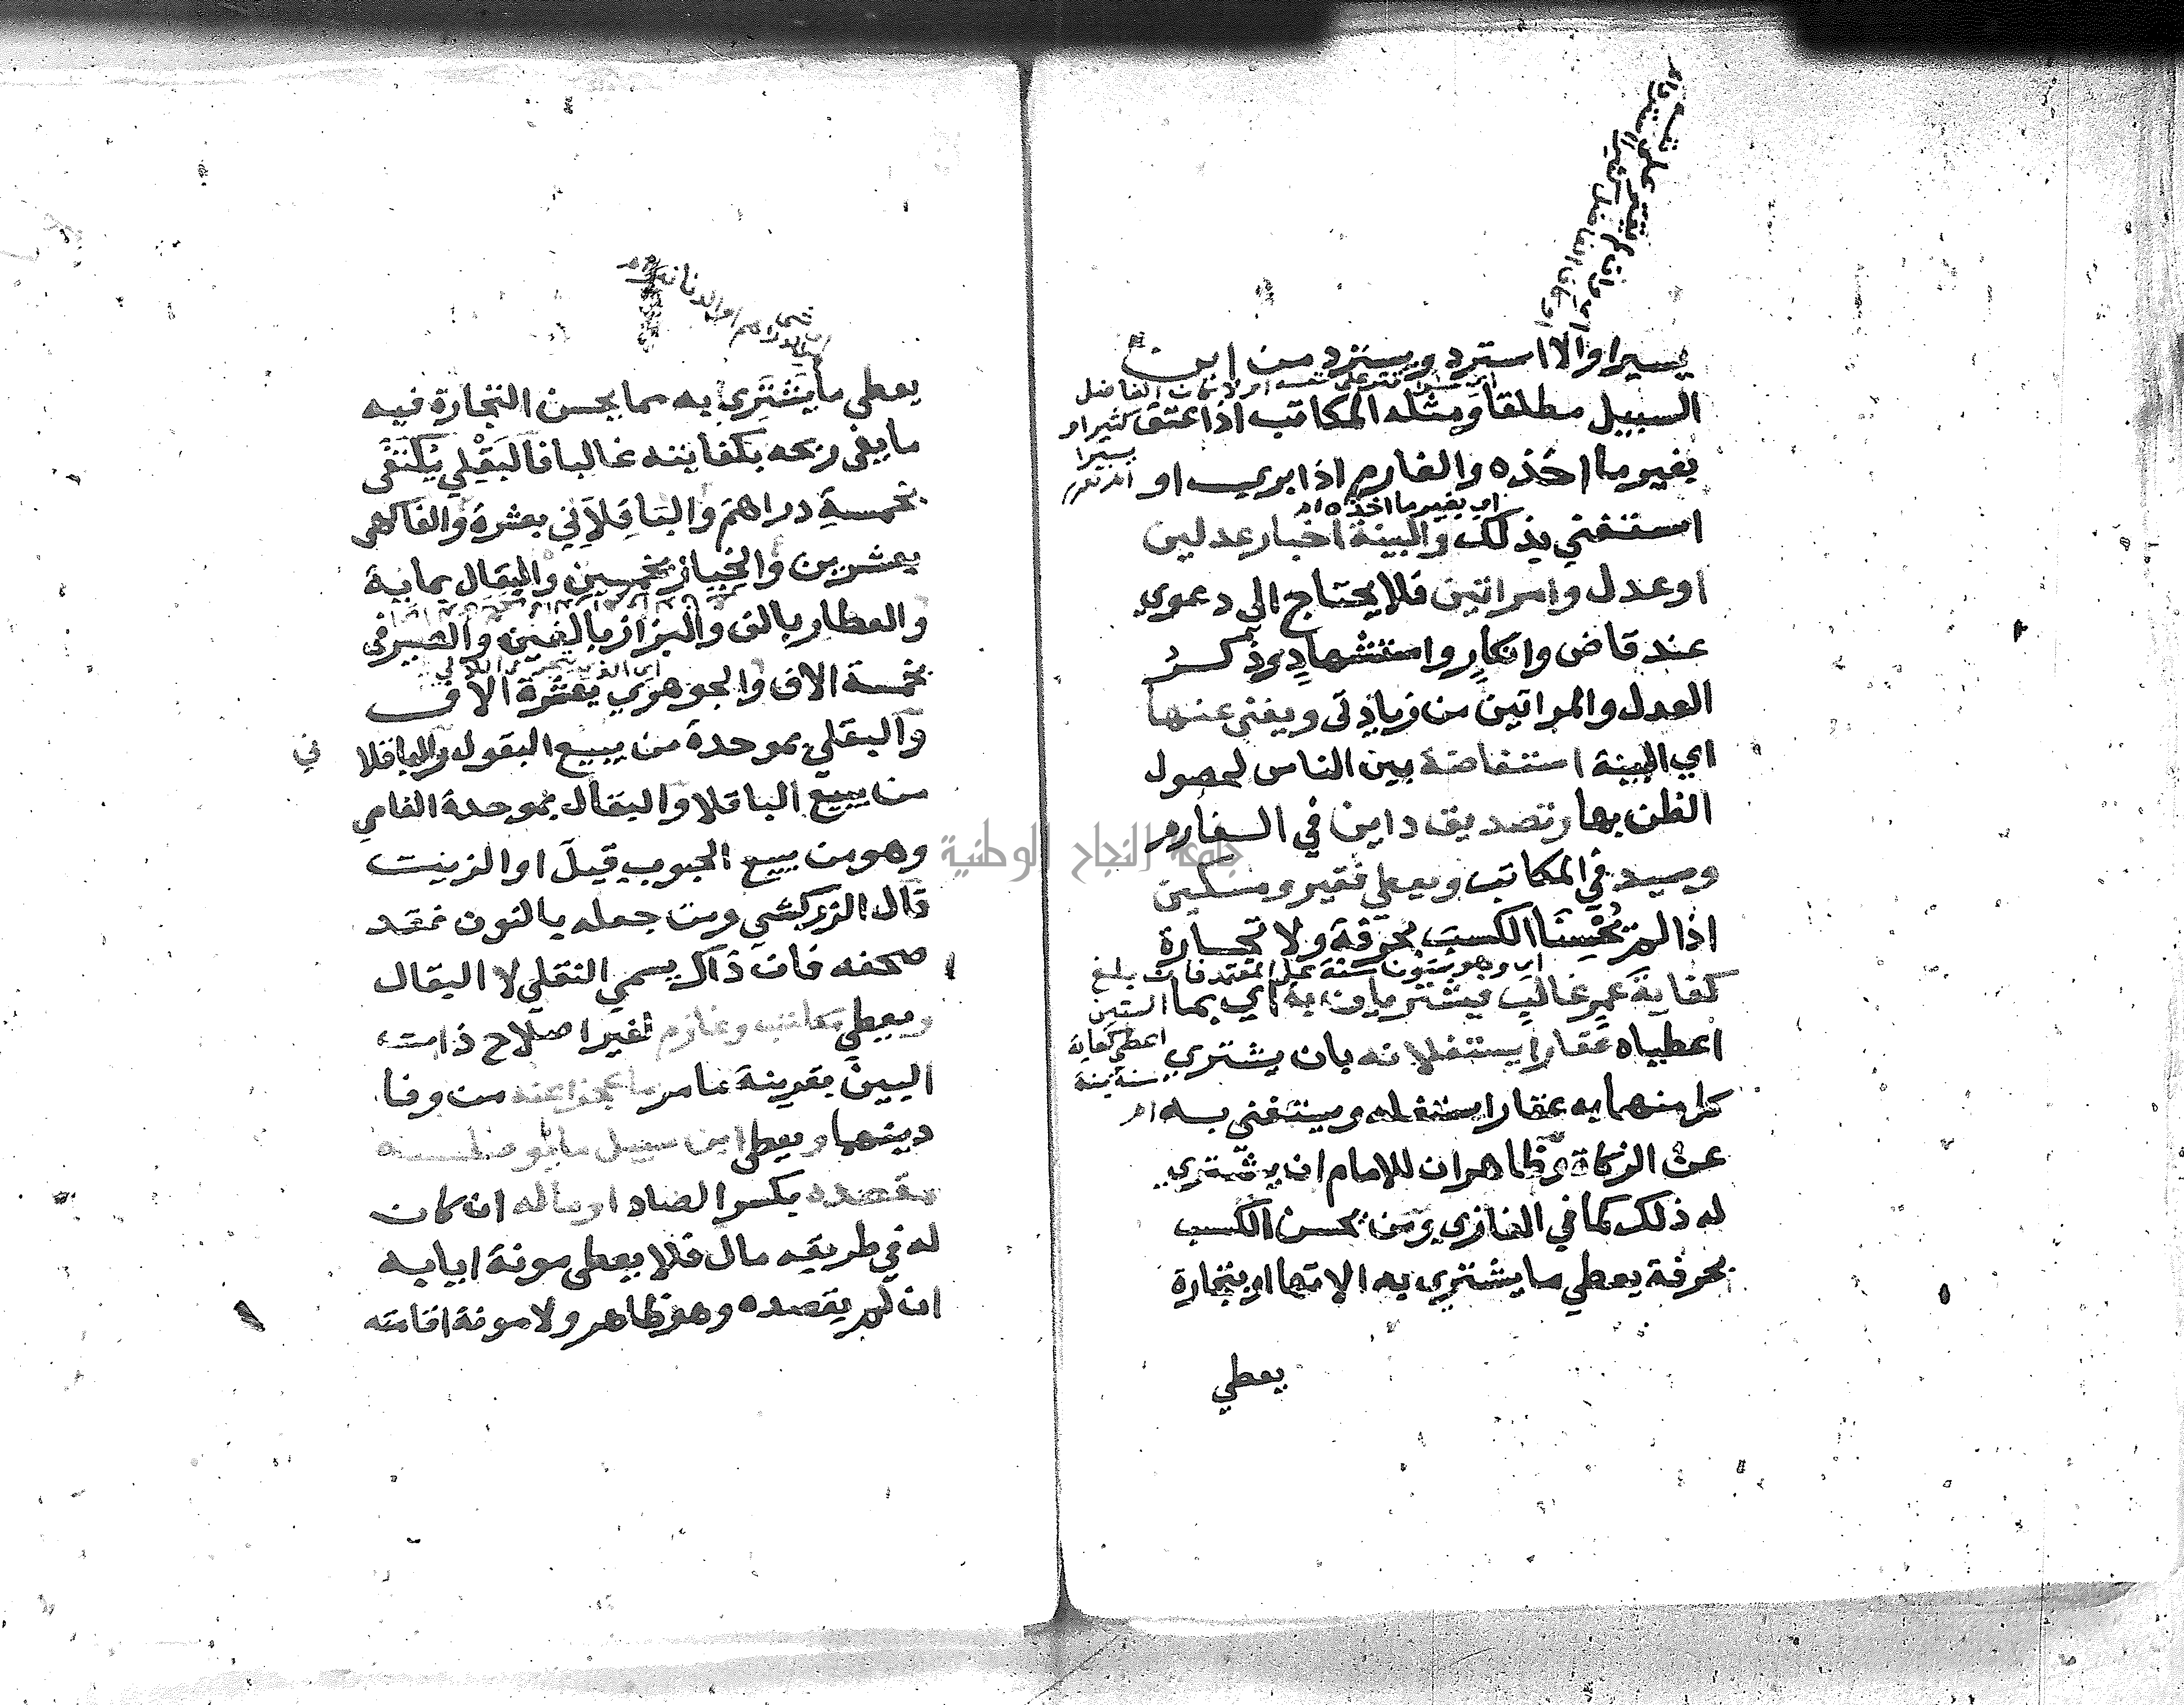 يسيرا والا استرد ويسترد من ابن
السبيل مطلقا ومثله المكاتب اذا عتق
بغير ما اخذه والغارم اذا بري او
اي بغير ما اخذه اه
استغني بذلك والبينة اخبار عدلين
او عدل وامراتين فلا يحتاج الى دعوي
عند قاض وانكار واستشهاد وذكر
العدل والمراتين من زيادتي ويغني عنها
اي البينة استفاضة بين الناس لحصول
الظن بها وتصديق داين في الغارم
وسيد في المكاتب ويعطي فقير ومسكين
اذا لم يحسنا الكسب بحرفة ولا تجارة
اي وهو ستون سنة على المعتمد فان بلغ
كفاية عمر غالب فيشتريان به اي بما
الستين
اعطياه عقارا يستغلانه بان يشتري
اعطي كفاية
سنة بسنة
كل منهما به عقارا يستغله ويستغني به اه
عن الزكاة وظاهر ان للامام ان يشتري
له ذلك كما في الغازي ومن يحسن الكسب
بحرفة يعطي ما يشتري به الاتها او بتجارة
يعطي
يعطي ما يشتري به مما يحسن التجارة فيه
ما يفي ربحه بكفايته غالبا فالبقلي يكتفى
بخمسة دراهم والباقلاني بعشرة والفاكهي
بعشرين والخباز بخمسين والبقال بماية
والعطار بالف والبزاز بالفين والصيرفي
بخمسة الاف والجوهري بعشرة الاف
والبقلي بموحدة من يبيع البقول والباقلا
ني
من يبيع الباقلا والبقال بموحدة الفامي
وهو من يبيع الحبوب قيل او الزيت
قال الزركشي ومن جعله بالنون فقد
صحفه فان ذاك يسمي النقلي لا النقال
ويعطي مكاتب وغارم لغير اصلاح ذات
البين بقرينة ما مر ما عجزا عنه من وفا
دينهما ويعطى ابن سبيل ما يوصله
مقصده بكسر الصاد او ماله ان كان
له في طريقه مال فلا يعطى مونة ايابه
ان لم يقصده وهو ظاهر ولا مونة اقامته
جامعة النجاح الوطنية